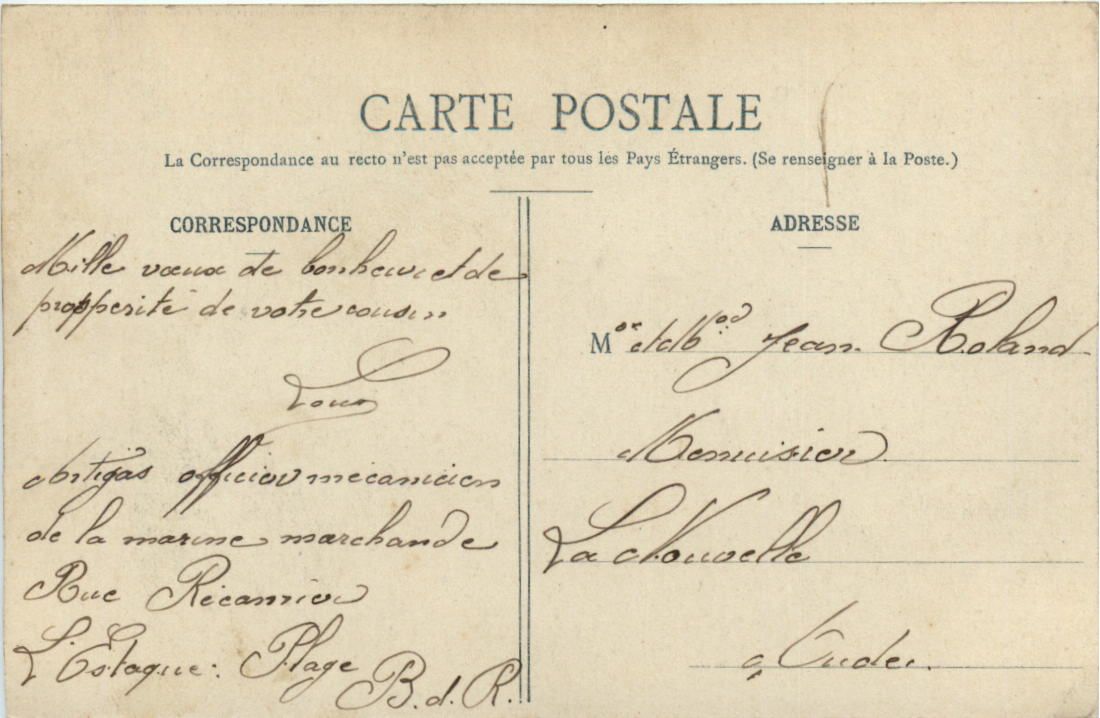 CARTE POSTALE
La Correspondance au recto n'est pas acceptée par tous les Pays Étrangers. (Se renseigner à la Poste.)
CORRESPONDANCE
Mille vœux de bonheur et de
propperité de votre cousin
Louis
Artigas officier mécanicien
de la marine marchande
Rue Récamier
L'Estaque: Plage
B.d.R.
ADRESSE
M et M Jean Roland
Menuisier
La Nouvelle
Aude